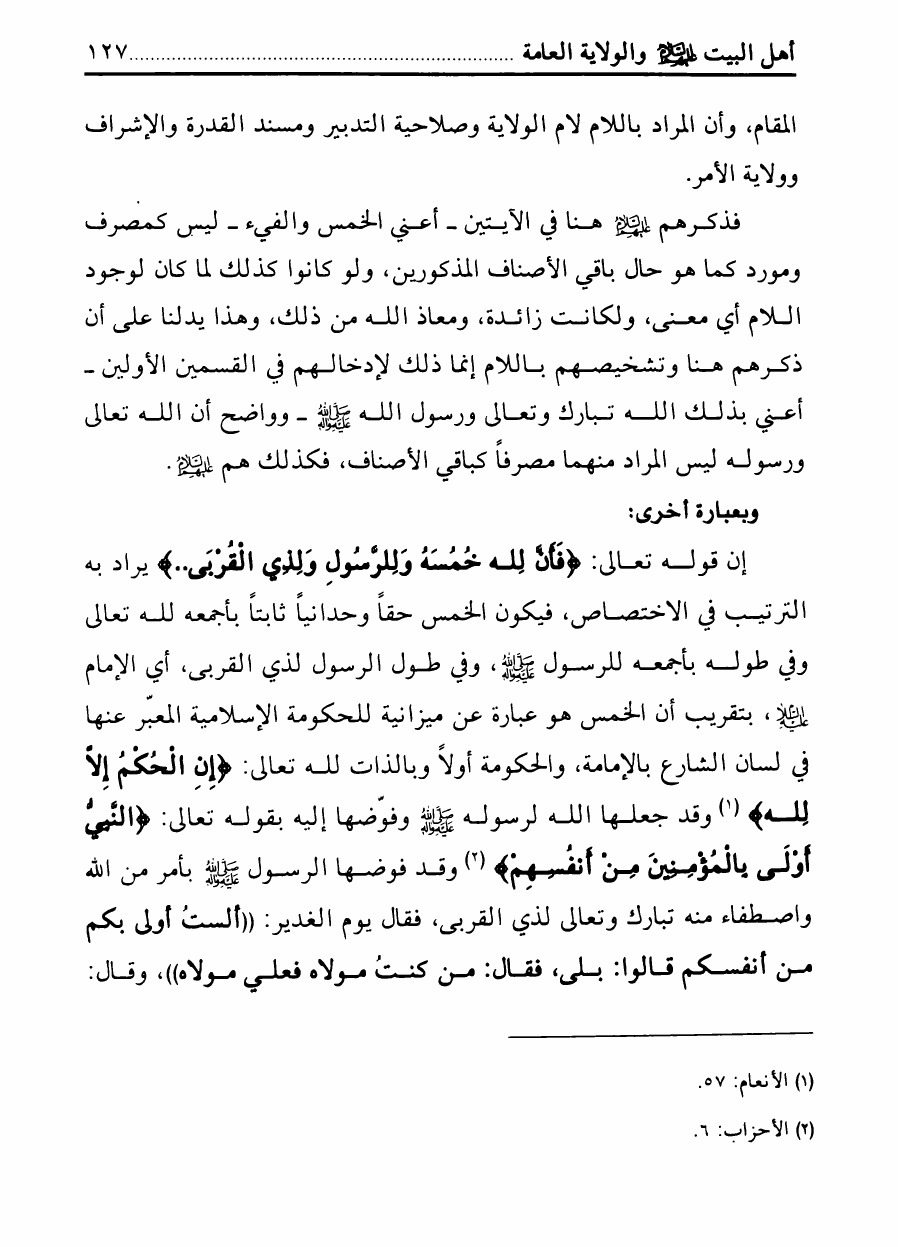 أهل البيت عليهم السلام والولاية العامة ................................................................ ١٢٧
المقام، وأن المراد باللام لام الولاية وصلاحية التدبير ومسند القدرة والإشراف
وولاية الأمر.
فذكرهم عليهم السلام هنا في الآيتين - أعني الخمس والفيء - ليس كمصرف
ومورد كما هو حال باقي الأصناف المذكورين، ولو كانوا كذلك لما كان لوجود
اللام أي معنى، ولكانت زائدة، ومعاذ الله من ذلك، وهذا يدلنا على أن
ذكرهم هنا وتشخيصهم باللام إنما ذلك لإدخالهم في القسمين الأولين -
أعني بذلك الله تبارك وتعالى ورسول الله ﷺ - وواضح أن الله تعالى
ورسوله ليس المراد منهما مصرفاً كباقي الأصناف، فكذلك هم عليهم السلام.
وبعبارة أخرى:
إن قوله تعالى: ﴿فَأَنَّ لِله خُمُسَهُ وَلِلرَّسُولِ وَلِذِي الْقُرْبَى..﴾ يراد به
الترتيب في الاختصاص، فيكون الخمس حقاً وحدانياً ثابتاً بأجمعه لله تعالى
وفي طوله بأجمعه للرسول ﷺ، وفي طول الرسول لذي القربى، أي الإمام
عليه السلام، بتقريب أن الخمس هو عبارة عن ميزانية للحكومة الإسلامية المعبّر عنها
في لسان الشارع بالإمامة، والحكومة أولاً وبالذات لله تعالى: ﴿إِنِ الْحُكْمُ إِلاَّ
لِله﴾ (١) وقد جعلها الله لرسوله ﷺ وفوّضها إليه بقوله تعالى: ﴿النَّبِيُّ
أَوْلَى بِالْمُؤْمِنِينَ مِنْ أَنفُسِهِمْ﴾ (٢) وقد فوضها الرسول ﷺ بأمر من الله
واصطفاء منه تبارك وتعالى لذي القربى، فقال يوم الغدير: ((ألستُ أولى بكم
من أنفسكم قالوا: بلى، فقال: من كنتُ مولاه فعلي مولاه))، وقال:
(١) الأنعام: ٥٧.
(٢) الأحزاب: ٦.